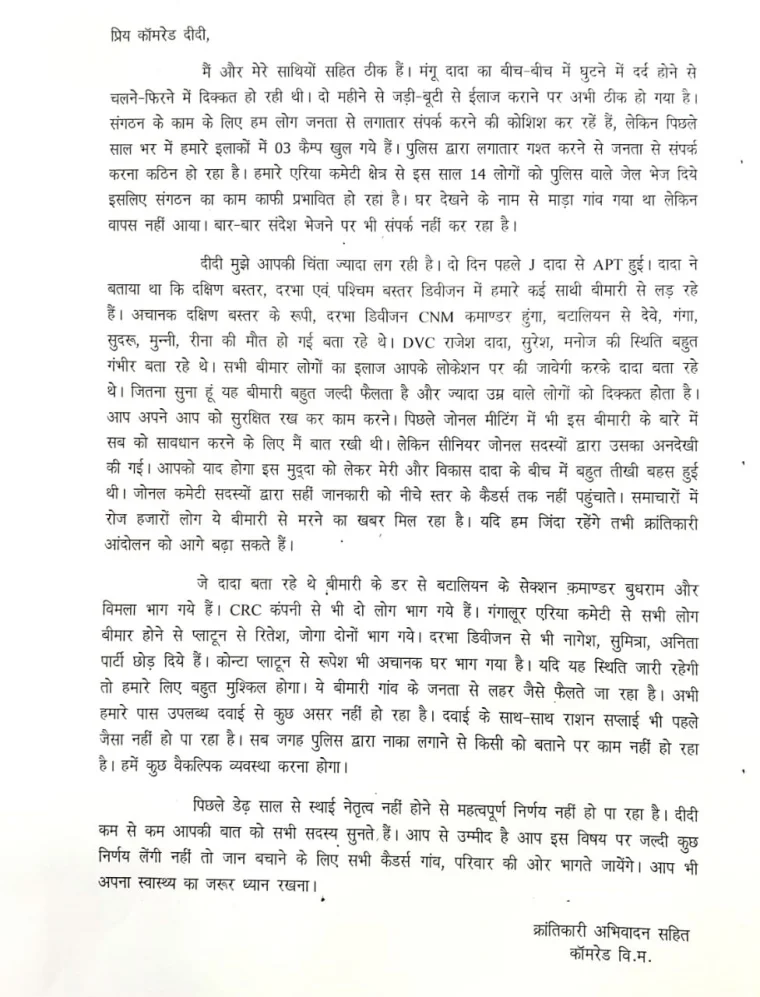 प्रिय कॉमरेड दीदी,
मैं और मेरे साथियों सहित ठीक हैं। मंगू दादा का बीच-बीच में घुटने में दर्द होने से
चलने-फिरने में दिक्कत हो रही थी। दो महीने से जड़ी-बूटी से ईलाज कराने पर अभी ठीक हो गया है।
संगठन के काम के लिए हम लोग जनता से लगातार संपर्क करने की कोशिश कर रहें हैं, लेकिन पिछले
साल भर में हमारे इलाकों में 03 कैम्प खुल गये हैं। पुलिस द्वारा लगातार गश्त करने से जनता से संपर्क
करना कठिन हो रहा है। हमारे एरिया कमेटी क्षेत्र से इस साल 14 लोगों को पुलिस वाले जेल भेज दिये
इसलिए संगठन का काम काफी प्रभावित हो रहा है। घर देखने के नाम से माड़ा गांव गया था लेकिन
वापस नहीं आया। बार-बार संदेश भेजने पर भी संपर्क नहीं कर रहा है।
दीदी मुझे आपकी चिंता ज्यादा लग रही है। दो दिन पहले J दादा से APT हुई। दादा ने
बताया था कि दक्षिण बस्तर, दरभा एवं पश्चिम बस्तर डिवीजन में हमारे कई साथी बीमारी से लड़ रहे
हैं। अचानक दक्षिण बस्तर के रूपी, दरभा डिवीजन CNM कमाण्डर हुंगा, बटालियन से देवे, गंगा,
सुदरू, मुन्नी, रीना की मौत हो गई बता रहे थे। DVC राजेश दादा, सुरेश, मनोज की स्थिति बहुत
गंभीर बता रहे थे। सभी बीमार लोगों का इलाज आपके लोकेशन पर की जावेगी करके दादा बता रहे
थे। जितना सुना हूं यह बीमारी बहुत जल्दी फैलता है और ज्यादा उम्र वाले लोगों को दिक्कत होता है।
आप अपने आप को सुरक्षित रख कर काम करने। पिछले जोनल मीटिंग में भी इस बीमारी के बारे में
सब को सावधान करने के लिए मैं बात रखी थी। लेकिन सीनियर जोनल सदस्यों द्वारा उसका अनदेखी
की गई। आपको याद होगा इस मुद्दा को लेकर मेरी और विकास दादा के बीच में बहुत तीखी बहस हुई
थी। जोनल कमेटी सदस्यों द्वारा सहीं जानकारी को नीचे स्तर के कैडर्स तक नहीं पहुंचाते। समाचारों में
रोज हजारों लोग ये बीमारी से मरने का खबर मिल रहा है। यदि हम जिंदा रहेंगे तभी क्रांतिकारी
आंदोलन को आगे बढ़ा सकते हैं।
जे दादा बता रहे थे बीमारी के डर से बटालियन के सेक्शन कमाण्डर बुधराम और
विमला भाग गये हैं। CRC कंपनी से भी दो लोग भाग गये हैं। गंगालूर एरिया कमेटी से सभी लोग
बीमार होने से प्लाटून से रितेश, जोगा दोनों भाग गये। दरभा डिवीजन से भी नागेश, सुमित्रा, अनिता
पार्टी छोड़ दिये हैं। कोन्टा प्लाटून से रूपेश भी अचानक घर भाग गया है। यदि यह स्थिति जारी रहेगी
तो हमारे लिए बहुत मुश्किल होगा। ये बीमारी गांव के जनता से लहर जैसे फैलते जा रहा है। अभी
हमारे पास उपलब्ध दवाई से कुछ असर नहीं हो रहा है। दवाई के साथ-साथ राशन सप्लाई भी पहले
जैसा नहीं हो पा रहा है। सब जगह पुलिस द्वारा नाका लगाने से किसी को बताने पर काम नहीं हो रहा
है। हमें कुछ वैकल्पिक व्यवस्था करना होगा।
पिछले डेढ़ साल से स्थाई नेतृत्व नहीं होने से महत्वपूर्ण निर्णय नहीं हो पा रहा है। दीदी
कम से कम आपकी बात को सभी सदस्य सुनते हैं। आप से उम्मीद है आप इस विषय पर जल्दी कुछ
निर्णय लेंगी नहीं तो जान बचाने के लिए सभी कैडर्स गांव, परिवार की ओर भागते जायेंगे। आप भी
अपना स्वास्थ्य का जरूर ध्यान रखना।
क्रांतिकारी अभिवादन सहित
कॉमरेड वि.म.